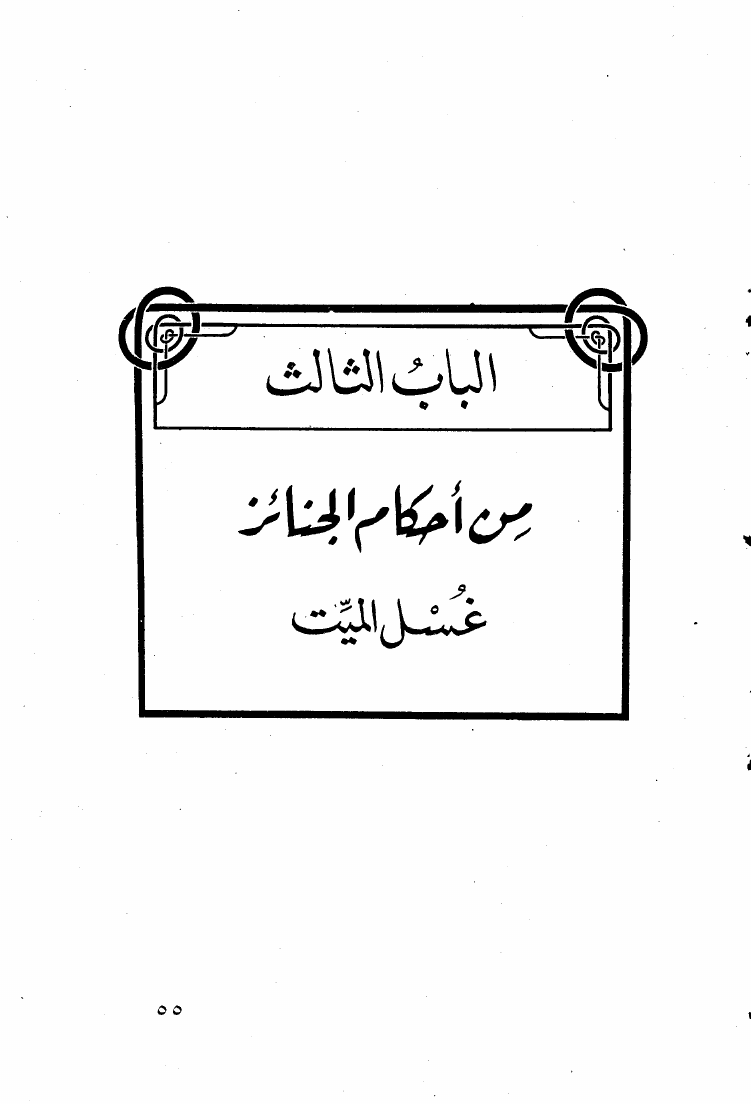 البابُ الثالث
مِن أحكام الجنائز
غُسْل الميِّت
٥٥